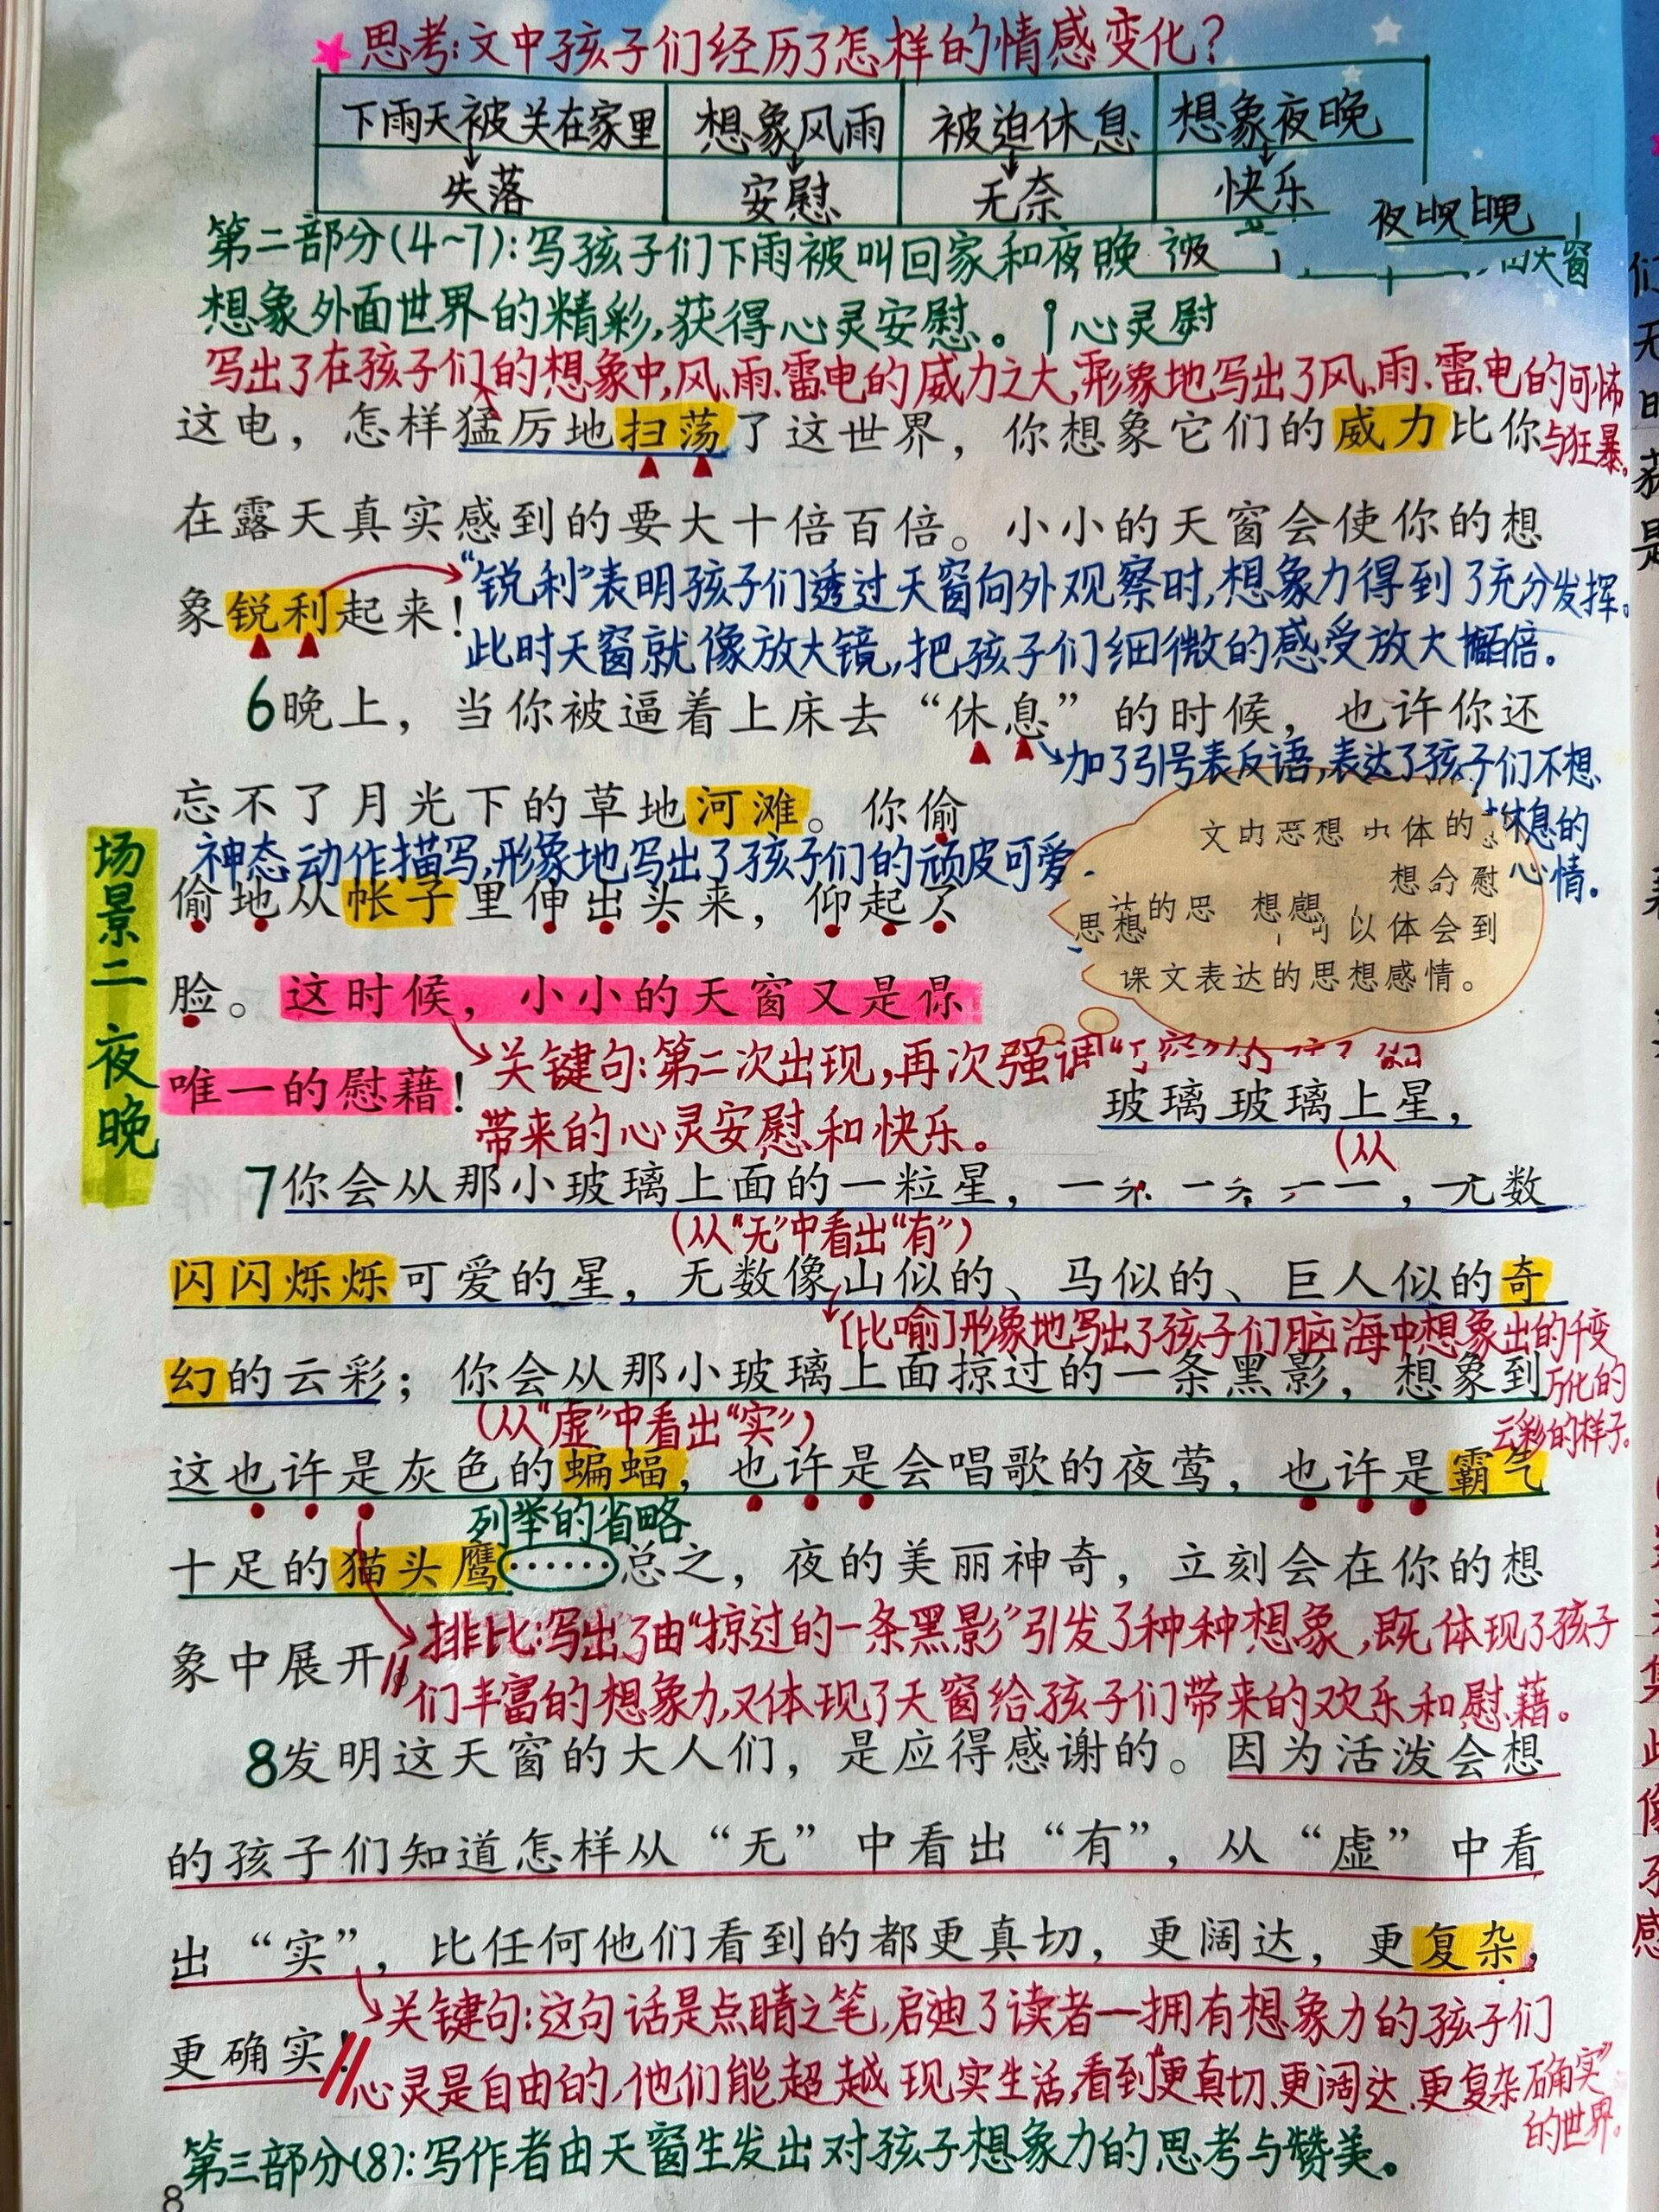 思考:文中孩子们经历了怎样的情感变化?
下雨天被关在家里 想象风雨 被迫休息 想象夜晚
失落 安慰 无奈 快乐
第二部分(4~7):写孩子们下雨被叫回家和夜晚被
想象外面世界的精彩,获得心灵安慰。心灵慰
写出了在孩子们的想象中,风、雨、雷、电的威力之大,形象地写出了风、雨、雷、电的可怖
与狂暴。
这电，怎样猛厉地扫荡了这世界，你想象它们的威力比你
在露天真实感到的要大十倍百倍。小小的天窗会使你的想
象锐利起来！
“锐利”表明孩子们透过天窗向外观察时,想象力得到了充分发挥。
此时天窗就像放大镜,把孩子们细微的感受放大 倍。
6晚上，当你被逼着上床去“休息”的时候，也许你还
加了引号表反语,表达了孩子们不想
休息的
心情。
忘不了月光下的草地河滩。你偷
神态、动作描写,形象地写出了孩子们的顽皮可爱.
偷地从帐子里伸出头来，仰起了
以体会到
课文表达的思想感情。
脸。这时候，小小的天窗又是你
唯一的慰藉！
关键句:第二次出现,再次强调
带来的心灵安慰和快乐。
玻璃玻璃上星，
(从
7你会从那小玻璃上面的一粒星，
无数
(从“无”中看出“有”)
闪闪烁烁可爱的星，无数像山似的、马似的、巨人似的奇
[比喻]形象地写出了孩子们脑海中想象出的千变
万化的
云彩的样子。
幻的云彩；你会从那小玻璃上面掠过的一条黑影，想象到
(从“虚”中看出“实”)
这也许是灰色的蝙蝠，也许是会唱歌的夜莺，也许是霸气
列举的省略
十足的猫头鹰……总之，夜的美丽神奇，立刻会在你的想
象中展开。
排比:写出了由“掠过的一条黑影”引发了种种想象,既体现了孩子
们丰富的想象力,又体现了天窗给孩子们带来的欢乐和慰藉。
8发明这天窗的大人们，是应得感谢的。因为活泼会想
的孩子们知道怎样从“无”中看出“有”，从“虚”中看
出“实”，比任何他们看到的都更真切，更阔达，更复杂，
更确实！
关键句:这句话是点睛之笔,启迪了读者—拥有想象力的孩子们
心灵是自由的,他们能超越现实生活,看到“更真切、更阔达、更复杂确实”
的世界。
第三部分(8):写作者由天窗生发出对孩子想象力的思考与赞美。
场景二 夜晚
8